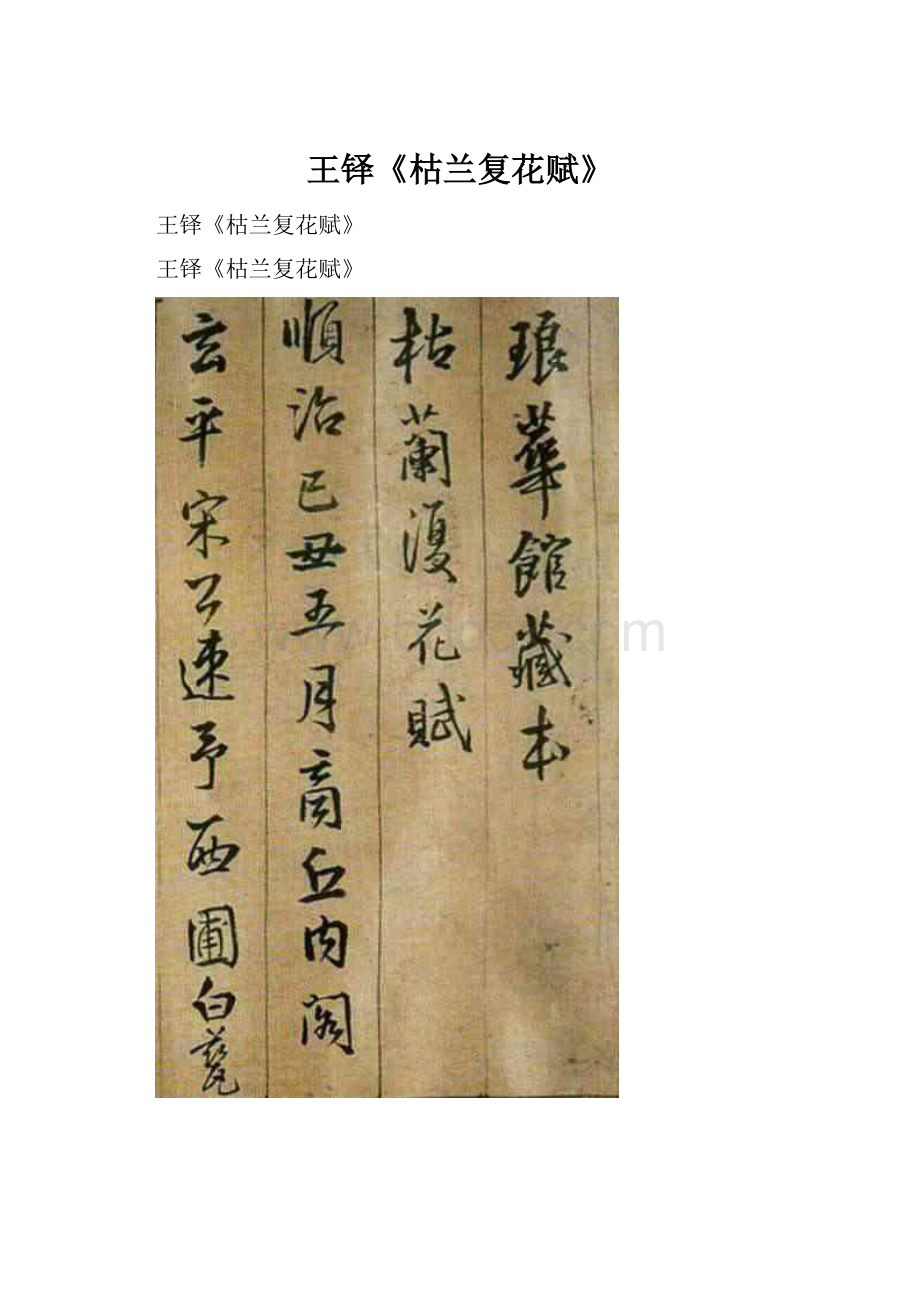 王铎《枯兰复花赋》
王铎《枯兰复花赋》
王铎《枯兰复花赋》
琅華館藏本
枯蘭復花賦
順治己丑五月商丘内閣
玄平宋公速予西圃白甆